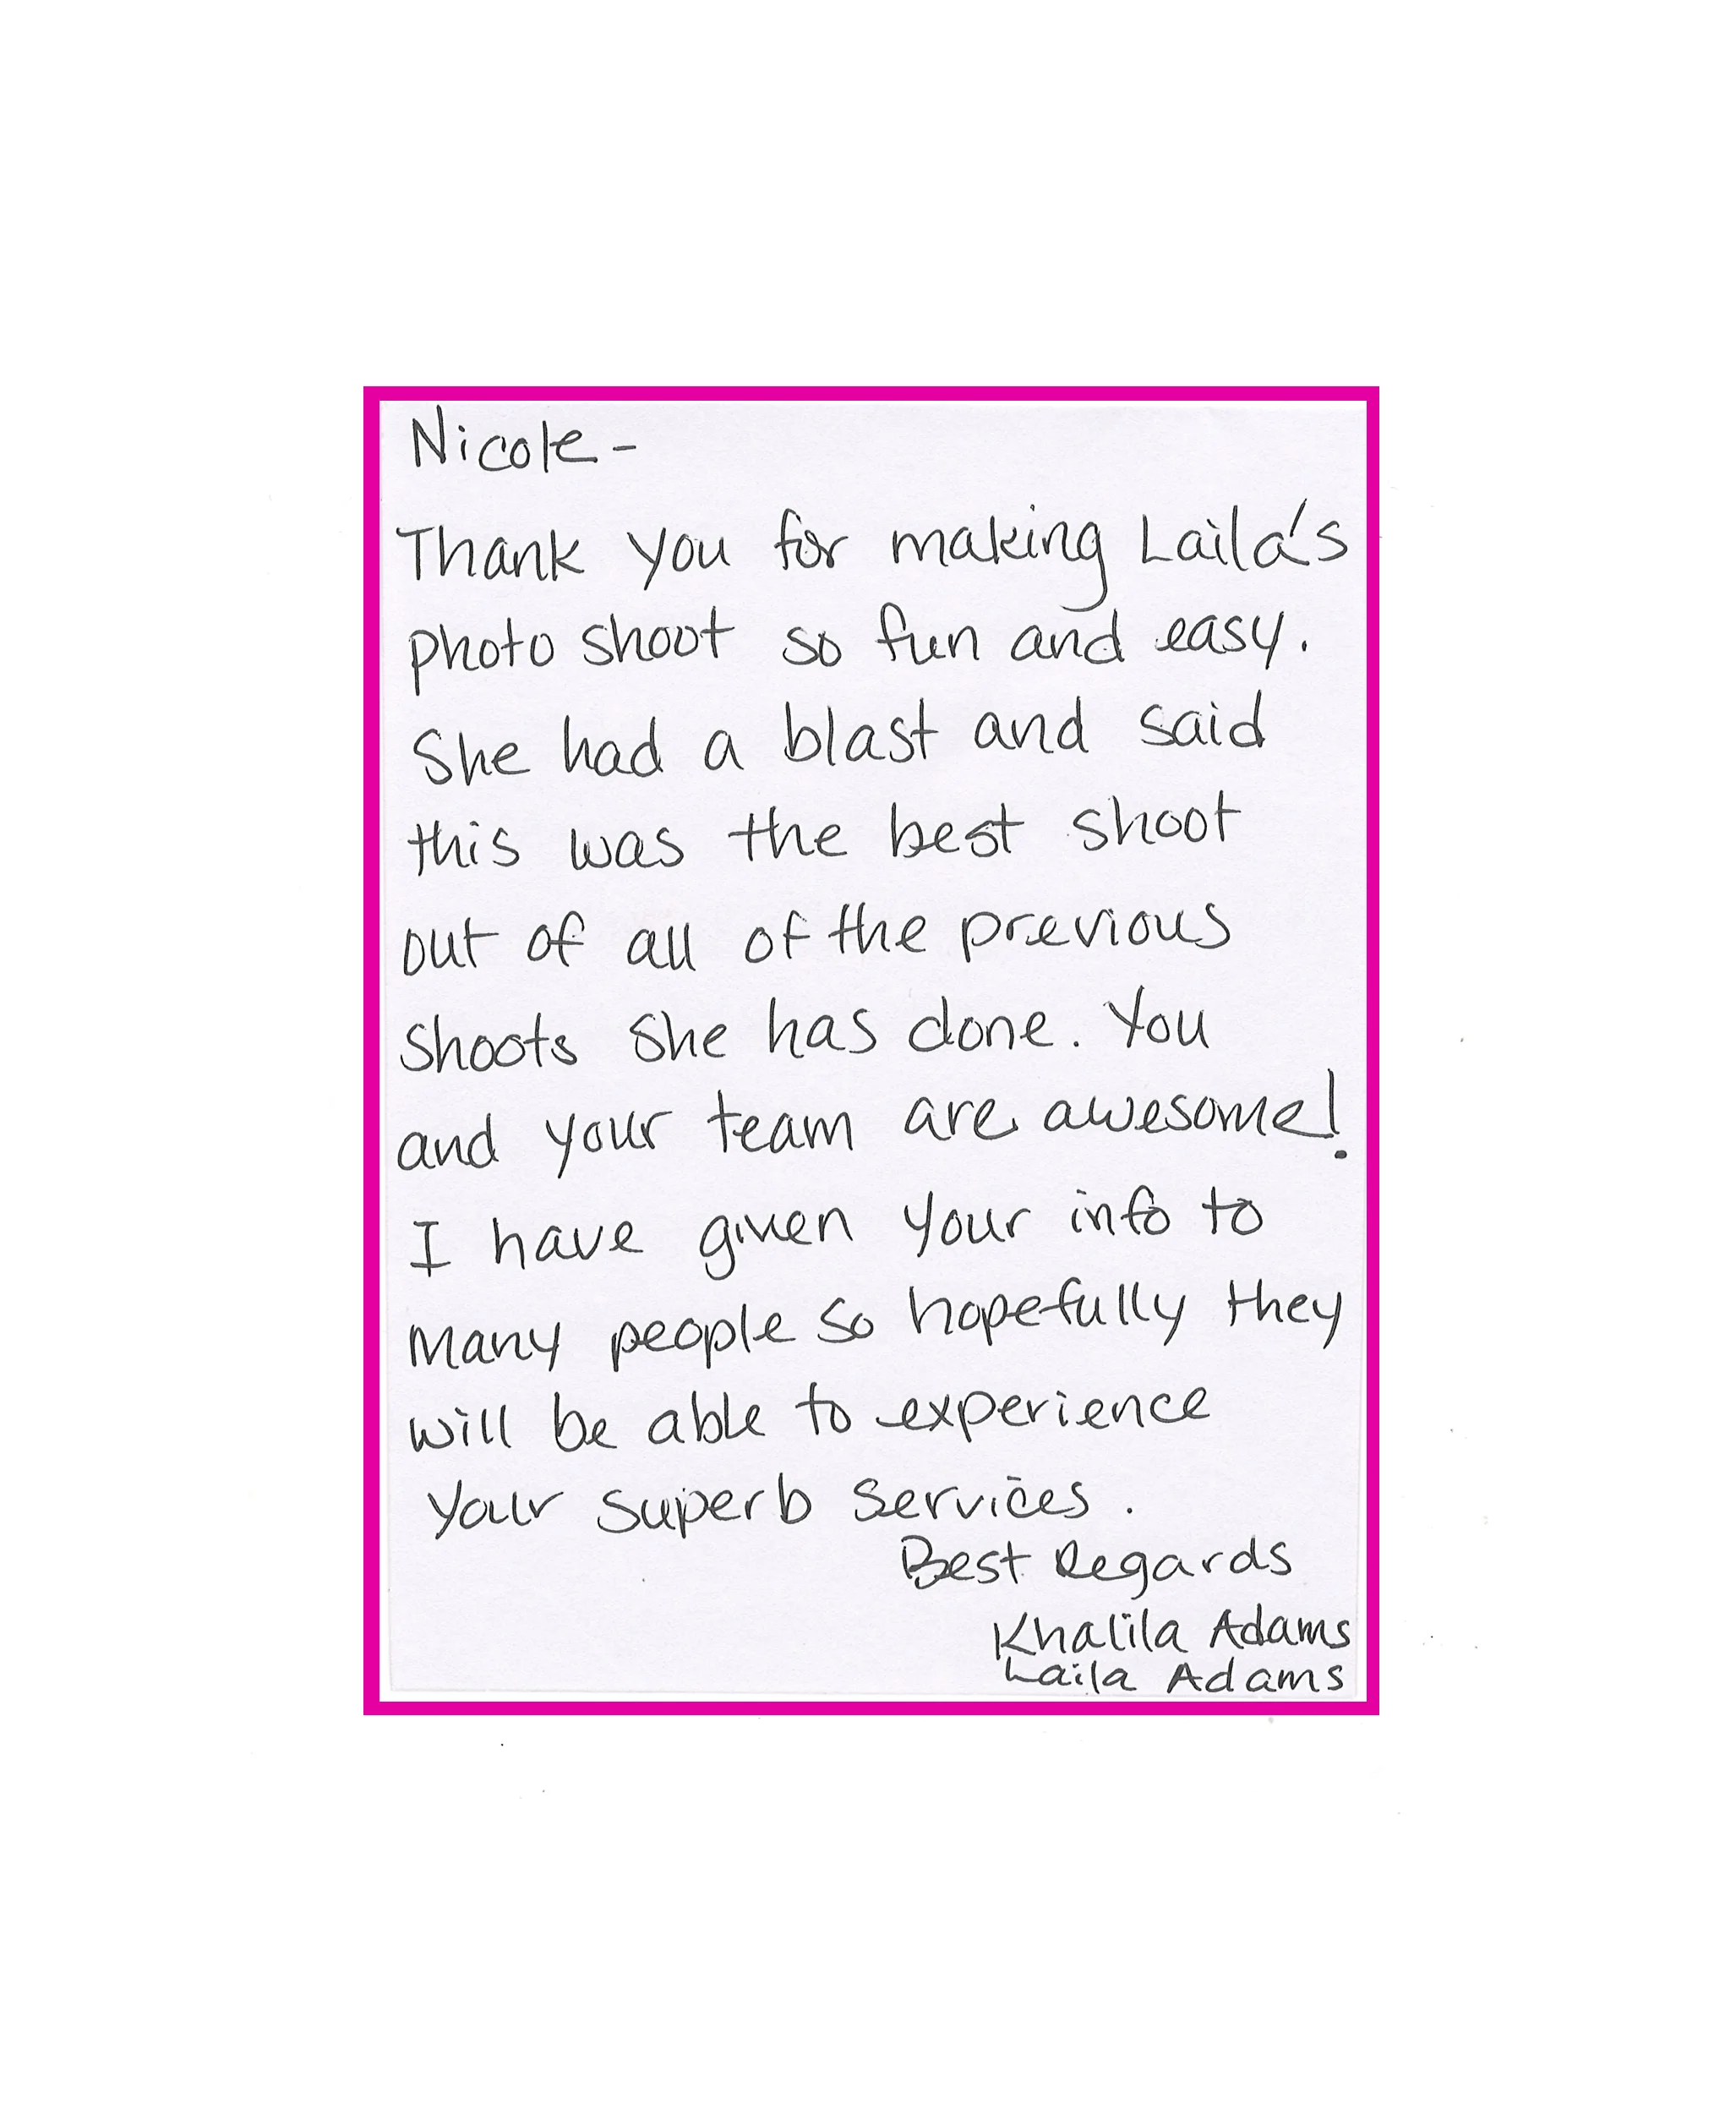 Nicole -
Thank you for making Laila's
photo shoot so fun and easy.
She had a blast and said
this was the best shoot
out of all of the previous
shoots she has done. You
and your team are awesome!
I have given your info to
many people so hopefully they
will be able to experience
your superb services.
Best Regards
Khalila Adams
Laila Adams